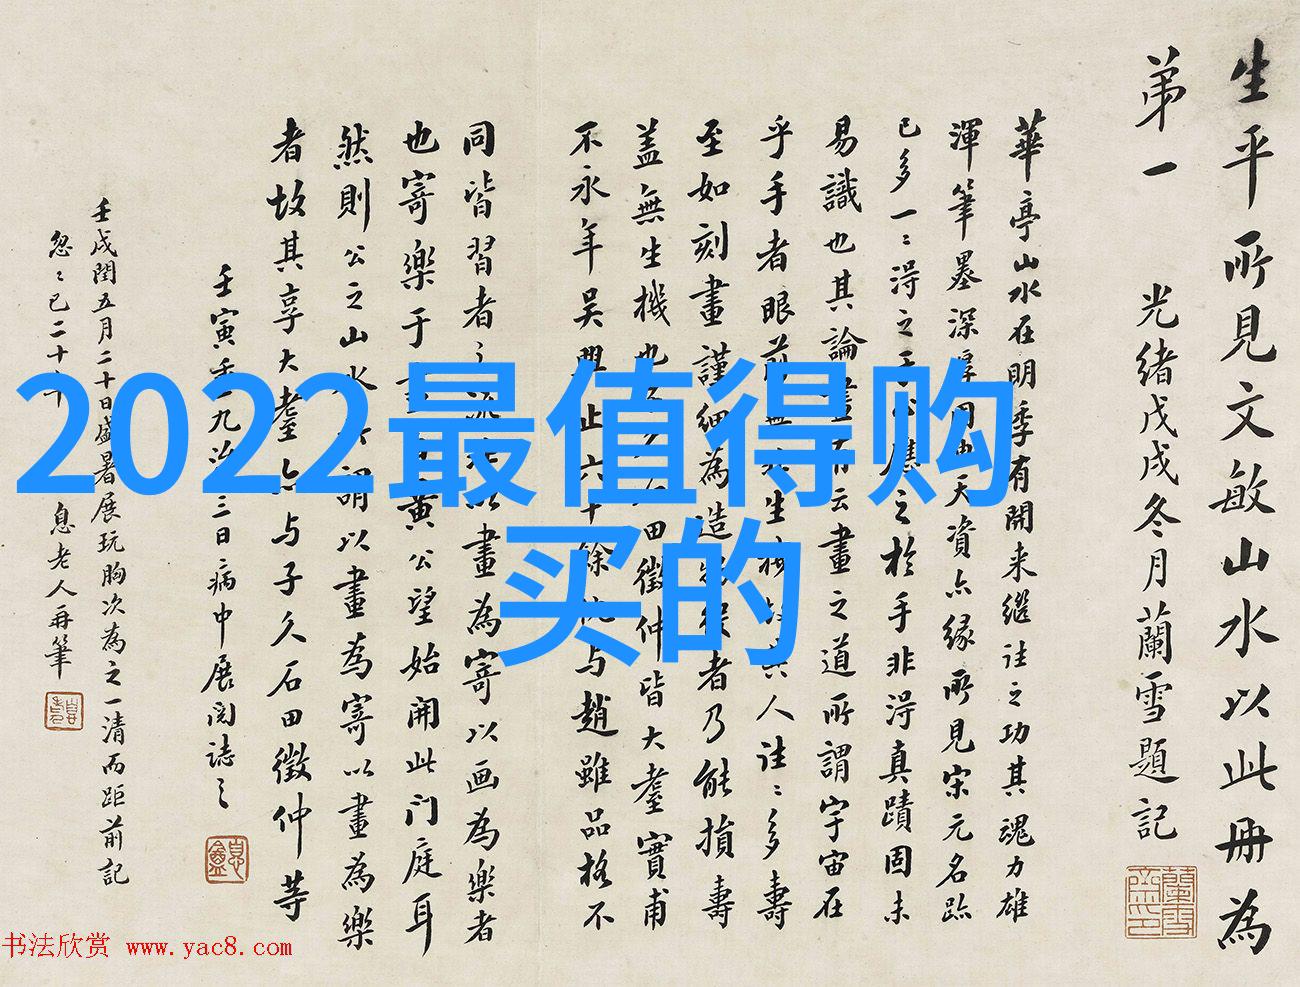 生平所見文敏山水以此冊為
弟一 光緒戊戌冬月蘭雪題記
華亭山水在明季有開来繼往之功其魂力雄
渾筆墨深厚天資亦緣所見宋元名跡
已多一二淂之應之於手非淂真蹟固未
易識也其論畫有云畫之道所謂宇宙在
乎手者眼前無生機其人往々多壽
至如刻畫謹細為造物役者乃能損壽
盖無生機也田徵仲皆大耋實甫
不永年吴興止六十餘仇与趙雖品格不
同皆習者之流以畫為寄以画為樂者
也寄樂于黄公望始開此门庭耳
然則公之山水謂以畫為寄以畫為樂
者故其享大耋亦与子久石田徵仲等
壬寅重九後三日病中展阅誌之
壬戌閏五月二十日盛暑展玩胸次為之一清而距前記
忽々已二十年 息老人再筆
2022最值得购
买的
书法欣赏 www.yac8.com